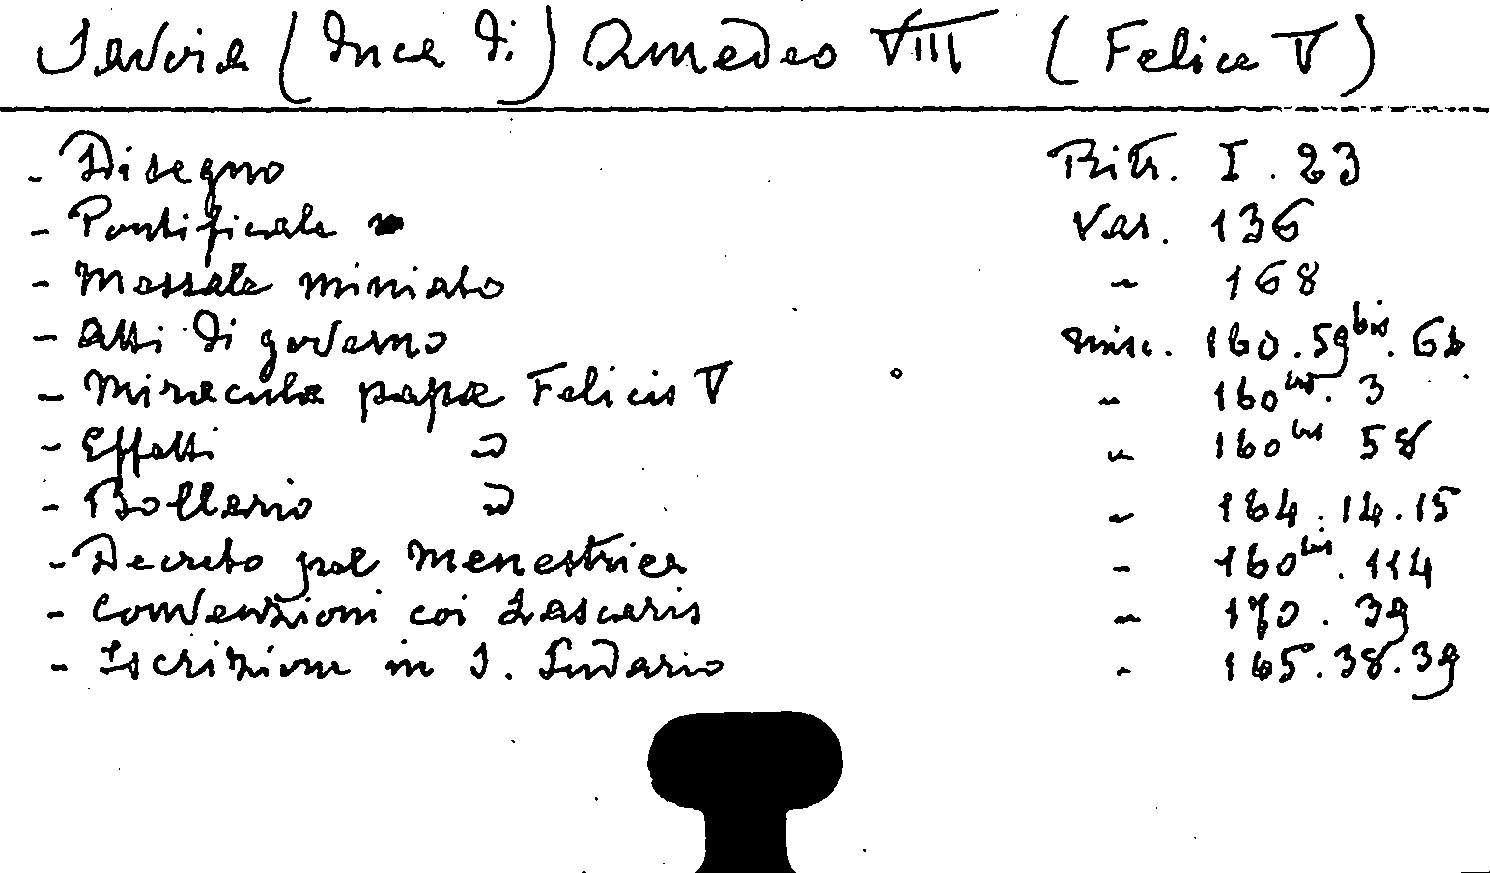 Savoia (Duca di) Amedeo VIII (Felice V)
- Disegno Ritr. I. 23
- Pontificale Var. 136
- Messale miniato " 168
- Atti di governo Misc. 160.59bis.
- Miracula papae Felicis V " 160bis. 3
- Effetti " 160bis 58
- Bollario " 164.14.15
- Decreto pel Menestrier " 160bis. 114
- Convenzioni coi Lascaris " 170. 39
- Iscrizione in S. Sudario " 165.38.39